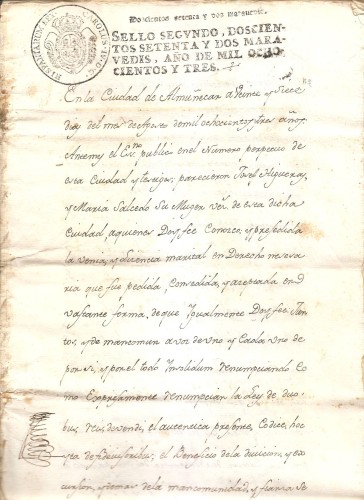 Doscientos setenta y dos maravedis.
HISPANIARUM REX CAROLUS IV D. G.
SELLO SEGVNDO, DOSCIEN-
TOS SETENTA Y DOS MARA-
VEDIS, AÑO DE MIL OCHO-
CIENTOS Y TRES.
En la Ciudad de Almuñecar a Veinte y Siete
dias del mes de de mil ochocientos y tres años,
Antemi el Esno public en el Numero perpetuo de
esta Ciudad y testigos, parecieron Josef Higueras,
y Maria Salcedo Su Muger vez.s de esta dicha
Ciudad, aquienes Doy fee Conozco, y prebia
la venia, y licencia marital en Derecho nesesa
ria que fue pedida, Consedida, y aseptada en
vastante forma, de que Igualmente Doy fee Jun
tos, y de mancomun a voz de uno y Cada Uno de
por si, y por el todo Insolidum Renunciando Co
mo Expresamente renuncian la Ley de duo
bus, reis devendi, el autentica presente, Codice, hoc
ita de fideiusoribus, el Beneficio de la division, y ex
cursion, y demas de la mancomunidad, y fianza Se